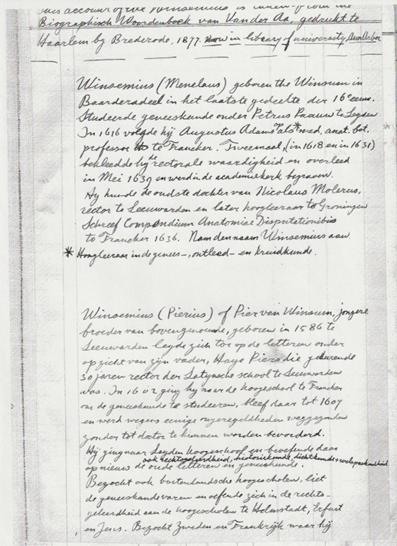 this account of the Winsemius is taken from the
Biographisch Woordenboek van Van der Aa, gedrukt te
Haarlem by Brederode, 1877. now in library of university Ann Arbor
Winsemius (Menelaus) geboren the Winsum in
Baarderadeel in het laatste gedeelte der 16e eeuw.
Studeerde geneeskunde onder Petrus Paauw te Leyden
In 1616 volgde hij Augustus Adam als med, anat. bot.
professor to te Franeker. Tweemaal, (in 1618 en in 1631)
bekleedde hij de rectorale waardigheid en overleed
in Mei 1639 en werd in de academiekerk begraven.
Hy huwde de oudste dochter van Nicolaus Mulerus,
rector te Leeuwarden en later hoogleeraar te Groningen
Schreef Compendium Anatomiae Disputationibus
te Franeker 1636. Nam den naam Winsemius aan
* Hoogleeraar in de genees-, ontleed- en kruidkunde.
Winsemius (Pierius) of Pier van Winsum, jongere
broeder van bovengenoemde, geboren in 1586 te
Leeuwarden legde zich toe op de letteren onder
opzicht van zijn vader, Hayo Pieri die gedurende
30 jaren rector der Latynsche school te Leeuwarden
was. In 1602 ging hy naar de hoogeschool te Franeker
om de geneeskunde te studeeren, bleef daar tot 1607
en werd wegens eenige ongeregeldheden weggezonden
zonder tot doctor te kunnen worden bevorderd.
Hij ging naar Leyden hoogeschool en beoefende daar
ook rechtsgeleerdheid, historiekunde, dichtkunde en welsprekendheid
opnieuw de oude letteren en geneeskunde.
Bezocht ook buitenlandsche hoogescholen, liet
de geneeskunde varen en oefende zich in de rechts-
geleerdheid aan de hoogescholen te Helmstadt, Erfurt
en Jena. Bezocht Zweden en Frankrijk waar hij